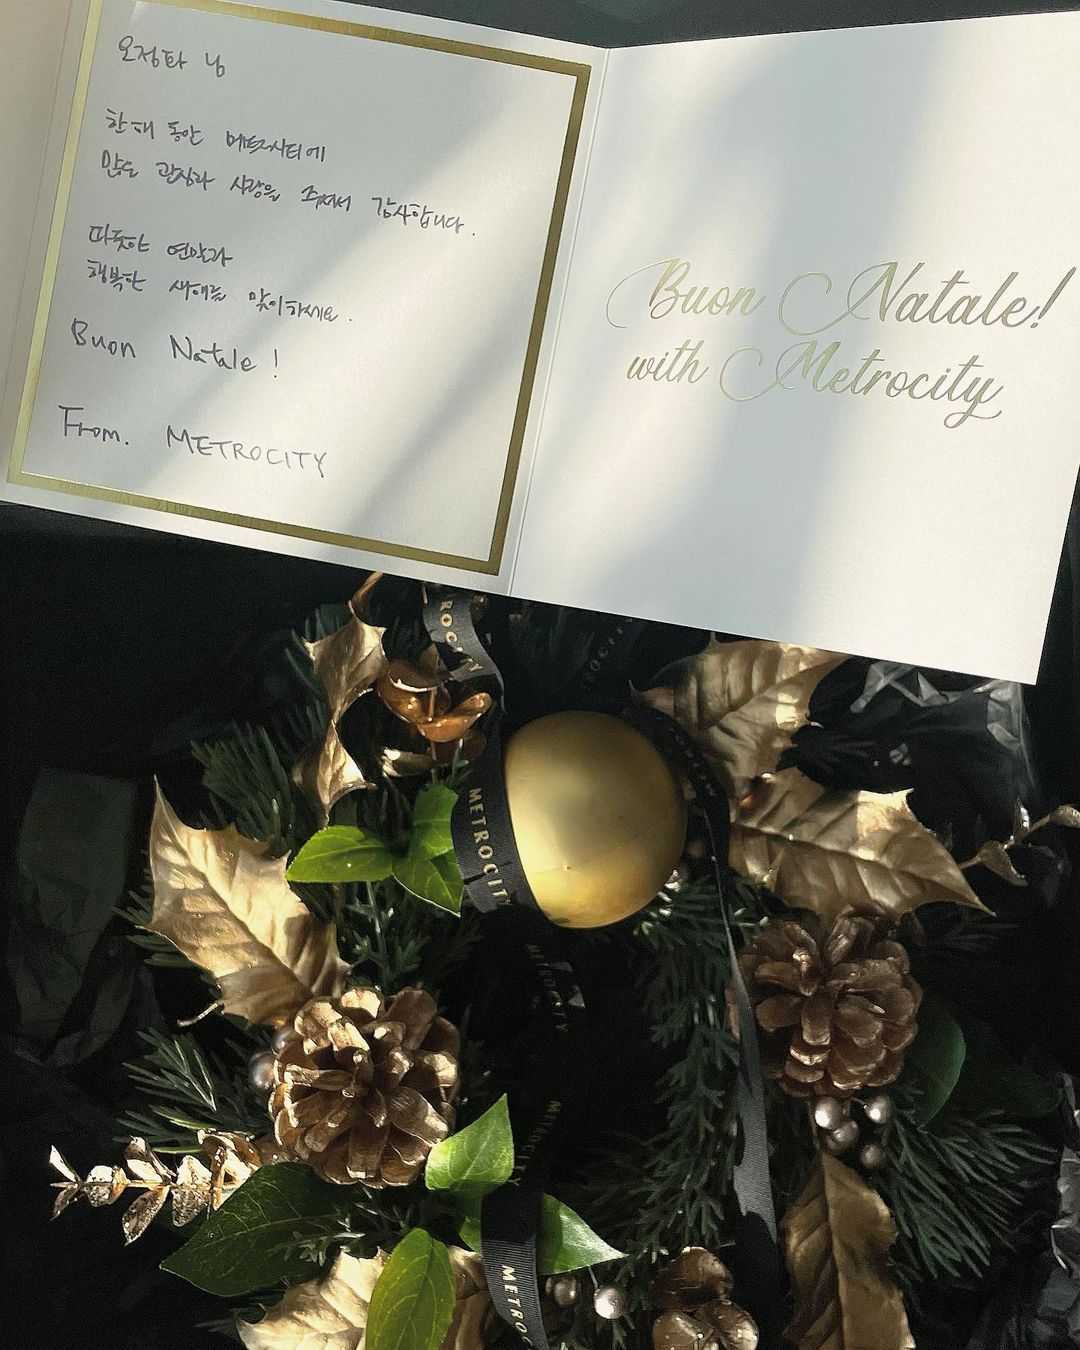 오정화 님
한해 동안 메트로시티에
많은 관심과 사랑을 주셔서 감사합니다.
따뜻한 연말과
행복한 새해를 맞이하세요.
Buon Natale!
From. METROCITY
Buon Natale!
with Metrocity
ROCITY
METROCITY
METROCITY
METROCITY
METRO